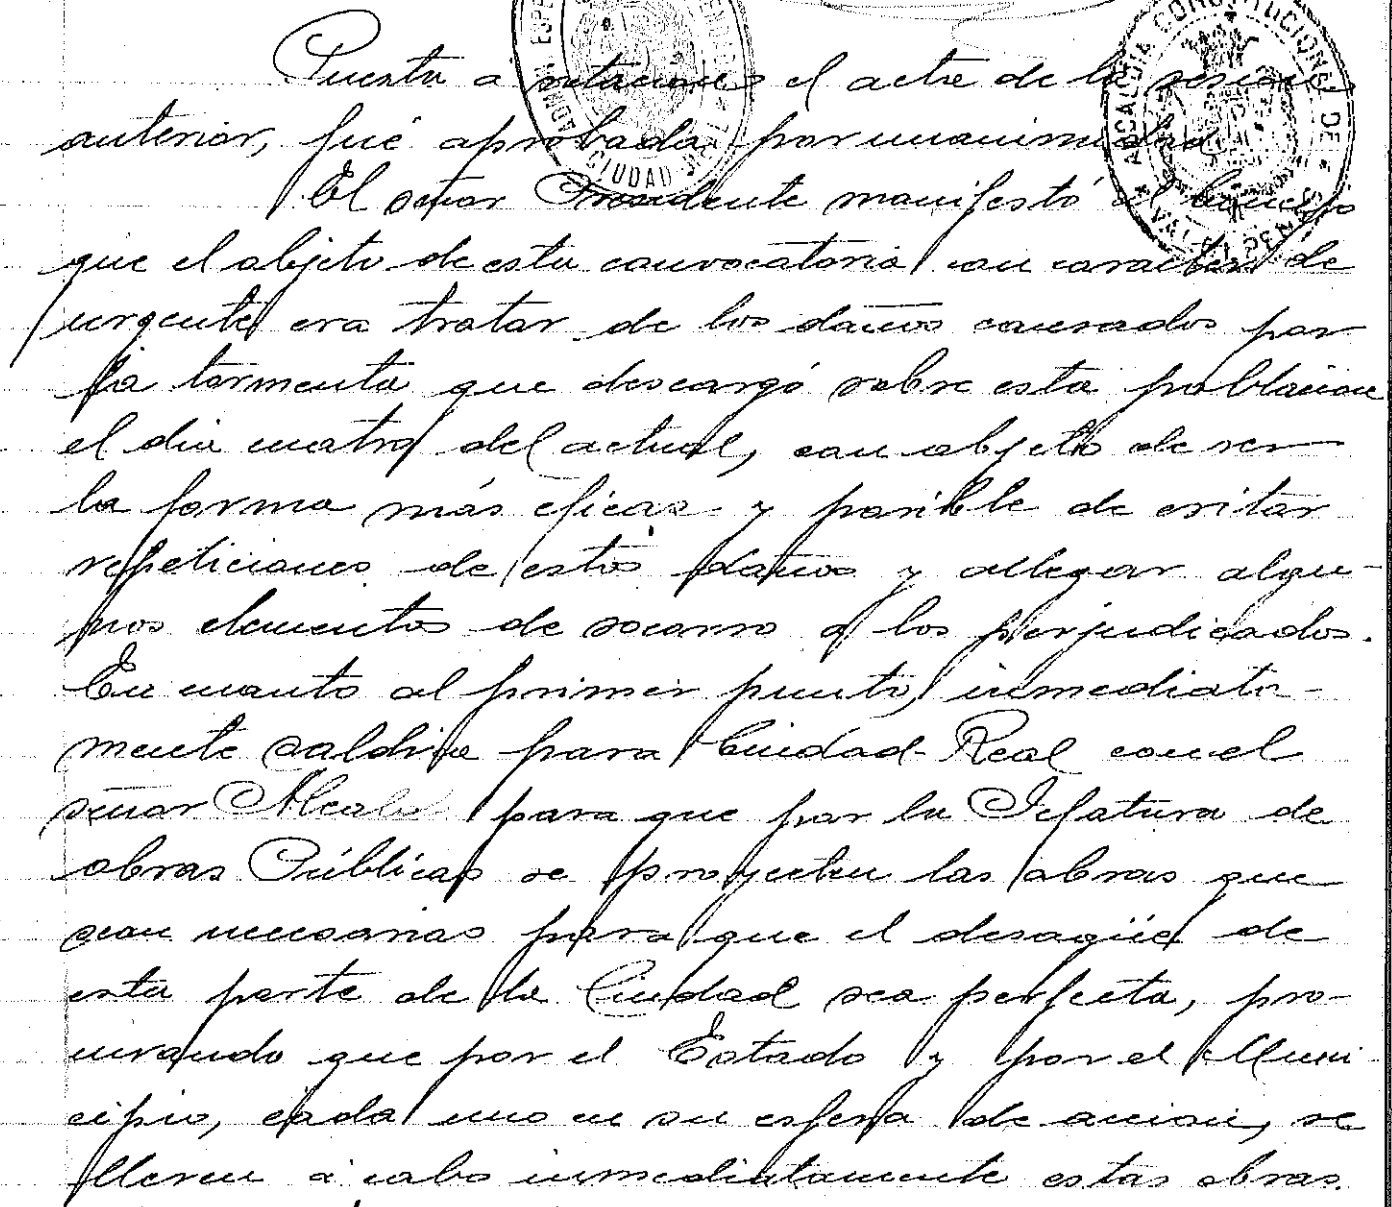 Puesta a votacion el acta de la sesion
anterior, fué aprobada por unanimidad.
El señor Presidente manifestó al Concejo
que el objeto de esta convocatoria con caracter de
urgente era tratar de los daños causados por
la tormenta que descargó sobre esta poblacion
el dia cuatro del actual, con objeto de ver
la forma más eficas y posible de evitar
repeticiones de estos daños y allegar algu-
nos elementos de socorro a los perjudicados.
En cuanto al primer punto, inmediata-
mente saldria para Ciudad-Real con el
señor Alcalde para que por la Jefatura de
obras Públicas se proyecten las obras que
sean necesarias para que el desagüe de
esta parte de la Ciudad sea perfecta, pro-
curando que por el Estado y por el Muni-
cipio, cada uno en su esfera de accion, se
lleven á cabo inmediatamente estas obras.
CIUDAD
ALCALDIA CONSTITUCIONAL DE